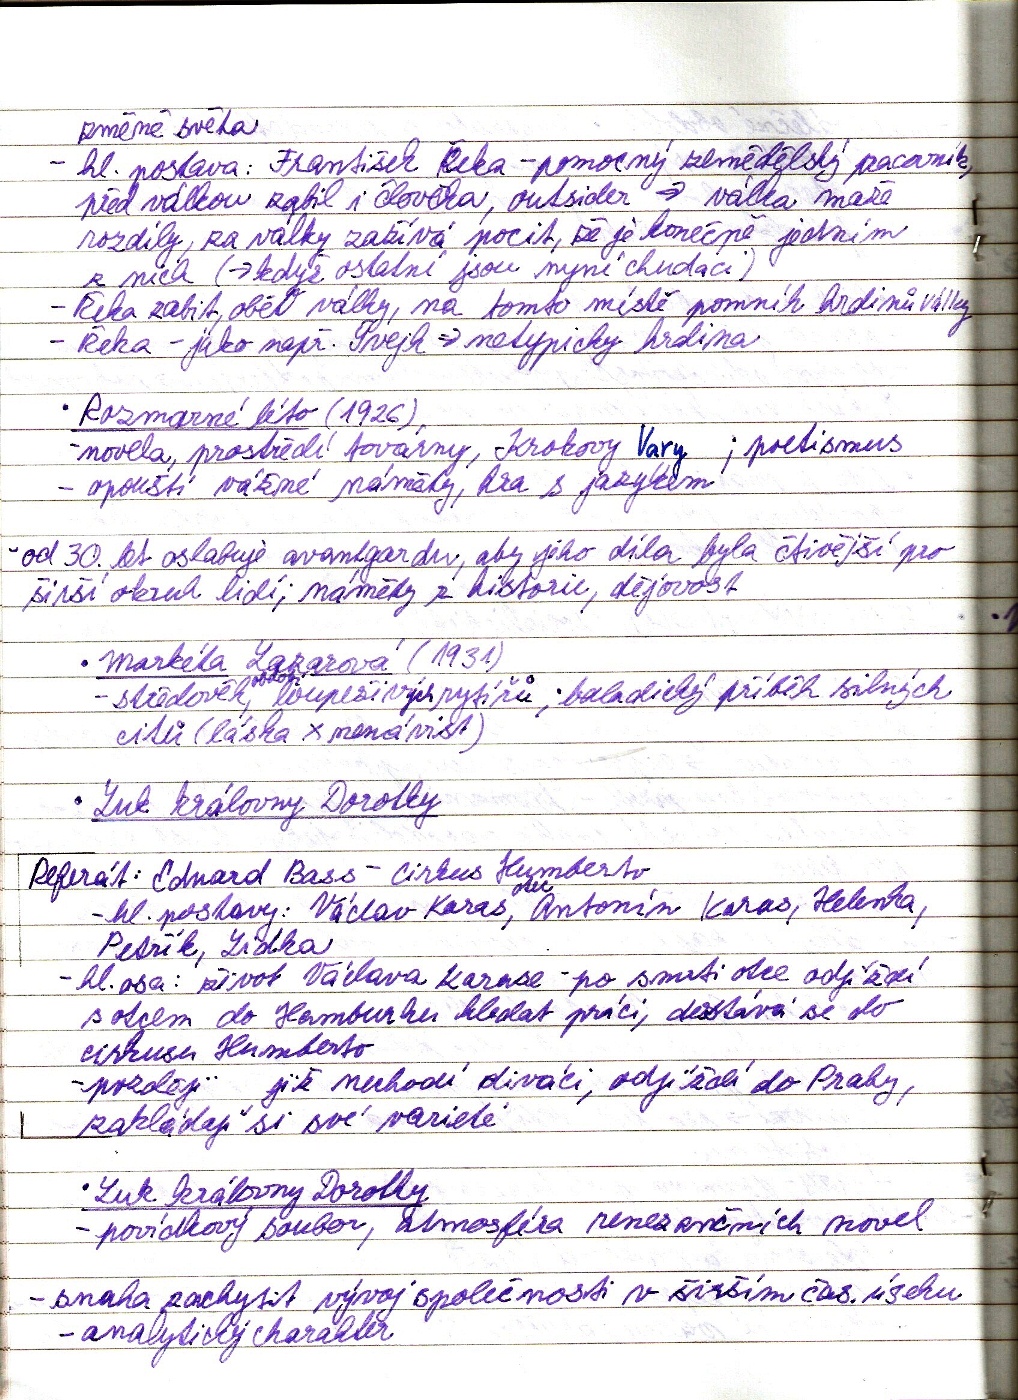 změně světa
- hl. postava: František Řeka - pomocný zemědělský pracovník,
před válkou zabil i člověka, outsider => válka maže
rozdíly, za války zažívá pocit, že je konečně jedním
z nich (→ když ostatní jsou nyní chudáci)
- Řeka zabit, oběť války, na tomto místě pomník hrdinů války
- Řeka - jako např. Švejk => netypický hrdina
• Rozmarné léto (1926)
- novela, prostředí továrny, Krokovy Vary ; poetismus
- opouští vážné náměty, hra s jazykem
- od 30. let oslabuje avantgardu, aby jeho díla byla čtivější pro
širší okruh lidí; náměty z historie, dějovost
• Markéta Lazarová (1931)
- středověk, období loupeživých rytířů ; baladický příběh silných
citů (láska x nenávist)
• Luk královny Dorotky
Referát: Eduard Bass - Cirkus Humberto
- hl. postavy: Václav Karas, otec Antonín Karas, Helenka,
Petřík, Lidka
- hl. osa: život Václava Karase - po smrti otce odjíždí
s otcem do Hamburku hledat práci, dostává se do
cirkusu Humberto
- později již nechodí diváci, odjíždí do Prahy,
zakládají si své varieté
• Luk královny Dorotky
- povídkový soubor, atmosféra renezančních novel
- snaha zachytit vývoj společnosti v širším čas. úseku
- analytický charakter